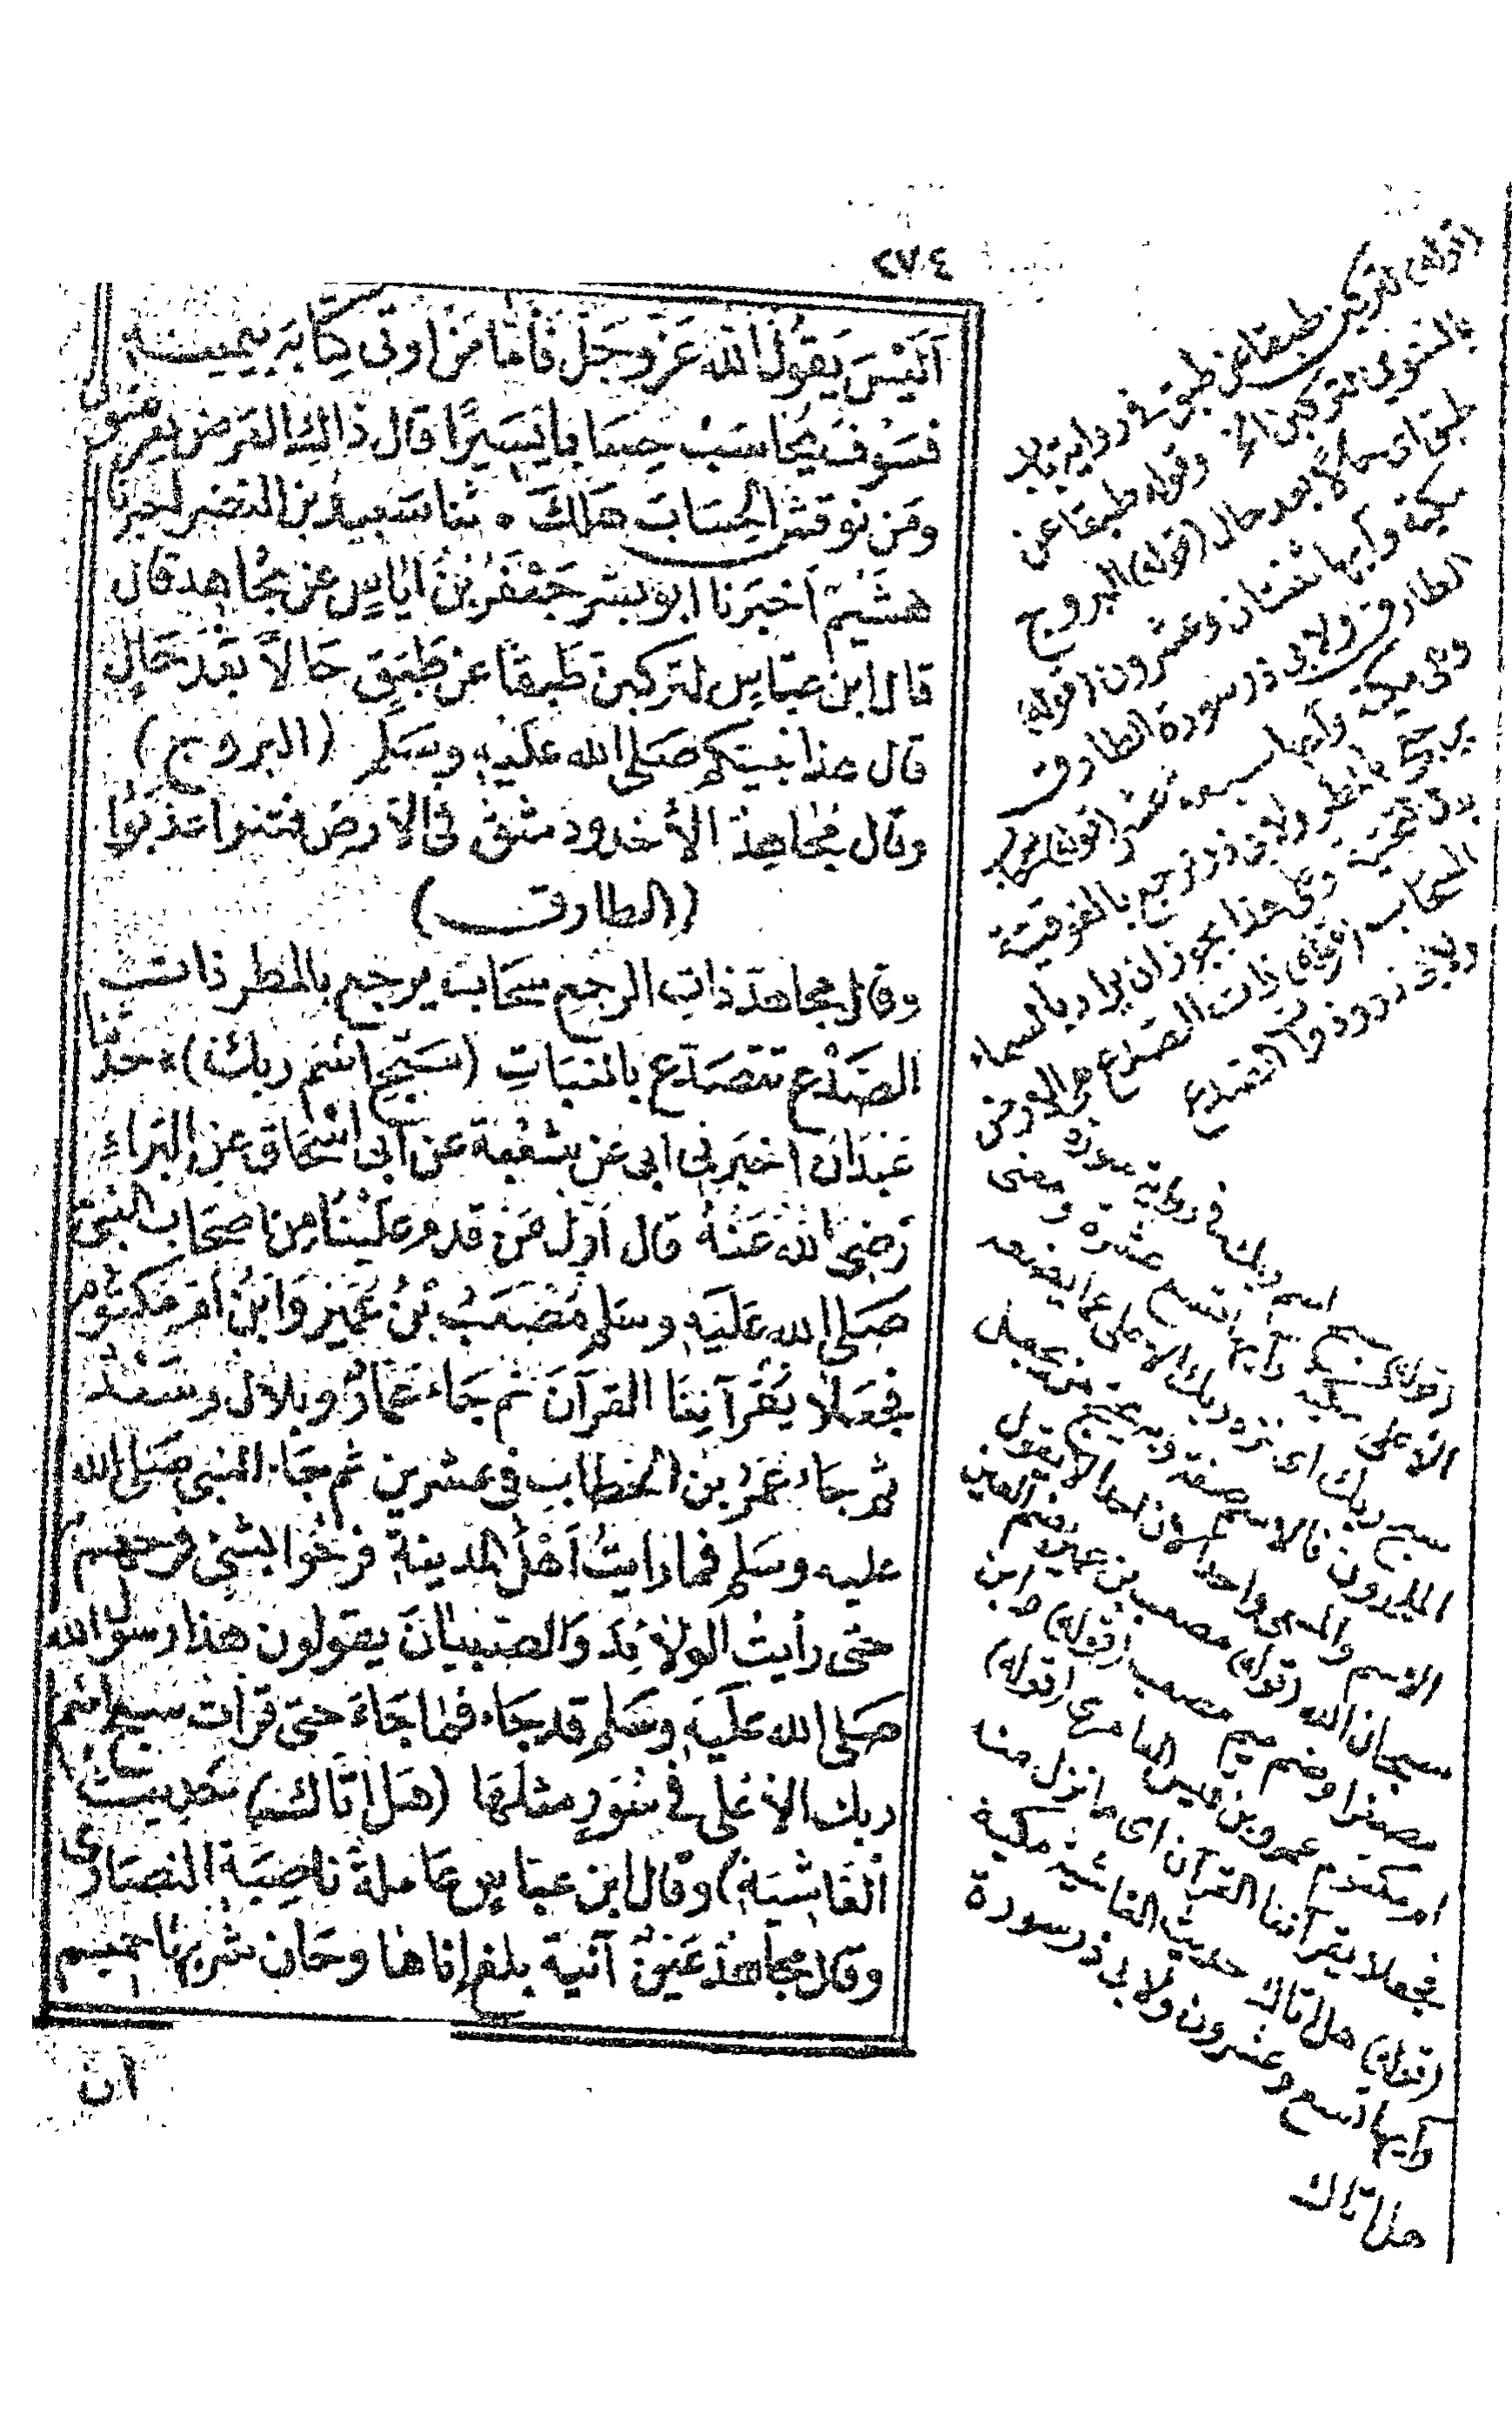 ٢٧٤
أَلَيْسَ يَقُولُ الله عَزَّ وَجَلَّ فَأَمَّا مَنْ أُوتِيَ كِتَابَهُ بِيَمِينِهِ
فَسَوْفَ يُحَاسَبُ حِسَابًا يَسِيرًا قال ذاك العرض يعرضون
ومَن نوقش الحِسَابَ هَلَكَ • ثنا سَعِيدُ بن النضر اخبرنا
هشَيْمٌ أخبَرنا ابو بشر جَعْفَرُ بْنُ ايَاسٍ عن مجُاهِد قال
قال ابن عبّاسٍ لتركبن طَبقًا عن طَبَقٍ حَالاً بَعْدَ حَالٍ
قال هذا نبيّكم صَلى الله عليه وسَلم (البروج)
وقال مجُاهِدٌ الأخدود شقّ فى الارض فتنوا عذّبوا
(الطارق)
وقال مجاهدٌ ذاتِ الرجع سَحَاب يرجع بالمطر ذات
الصَدْع تتصَدّع بالنبَاتِ (سَبّحِ اسْمَ ربك) • حدّثنا
عَبْدَان اخبَرنى ابى عَن شعْبة عن أبى اسْحَاق عن البَراءِ
رَضِيَ الله عَنْهُ قال أوّل مَنْ قدم علَيْنَا مِن اصحَاب النبىّ
صَلى الله عَليَه وسَلم مُصْعَبُ بْنُ عُمَيْر وَابْنُ أمّ مَكتُوم
فجَعَلا يُقْرآنِنَا القرآنَ ثم جَاءَ عَمّارٌ وبلال وسَعْدٌ
ثم جَاءَ عُمَرُ بن الخطاب فى عشرين ثم جَاءَ النبى صَلى الله
عليه وسَلم فما رايتُ أهْلَ المدينةِ فرحُوا بشئ فرحهم
حتى رأيت الولائدَ والصبيَانَ يقولون هذا رسول الله
صَلى الله علَيَه وسَلم قد جَاء فما جَاءَ حتى قرأت سبح اسْم
ربك الأعْلَى فى سُوَرٍ مثلهَا (هَل اتَاك) حَديث
الغَاشِيَةِ) وقال ابن عبّاسٍ عَاملةٌ نَاصِبَة النصَارَى
وقال مجاهدٌ عَيْنٍ آنية بلغ إناها وحَان شربهَا حميم
آن
(قوله) لتركبن طبقا عن طبق فى رواية بلا
وقوله طبقا عن
طبق اى حالا بعد حال (قوله) البروج
مكية وآيها ثنتان وعشرون (قوله)
الطارق ولابى ذر سورة الطارق
وهى مكية وآيها سبع عشر
ولابى ذر ترجع بالفوقية
وعلى هذا يجوز ان يراد بالسماء
السحاب (قوله) ذات الصدع هى الارض
الأعلى مكية وآيها تسع عشرة ومعنى
سبح ربك اى نزه ربك الاعلى عما يصفه
الملحدون فالاسم صفة وبه يحتج من يجعل
الاسم والمسمى واحدا لان احدا لا يقول
سبحان اسم الله (قوله) مصعب بن عمير بضم العين
مصغرا وضم ميم مصعب (قوله) وابن
ام مكتوم عمرو بن قيس العامرى (قوله)
فجعلا يقرآننا القرآن اى ما نزل منه
(قوله) هل اتاك حديث الغاشية مكية
وآيها تسع وعشرون ولابى ذر سورة
هل اتاك